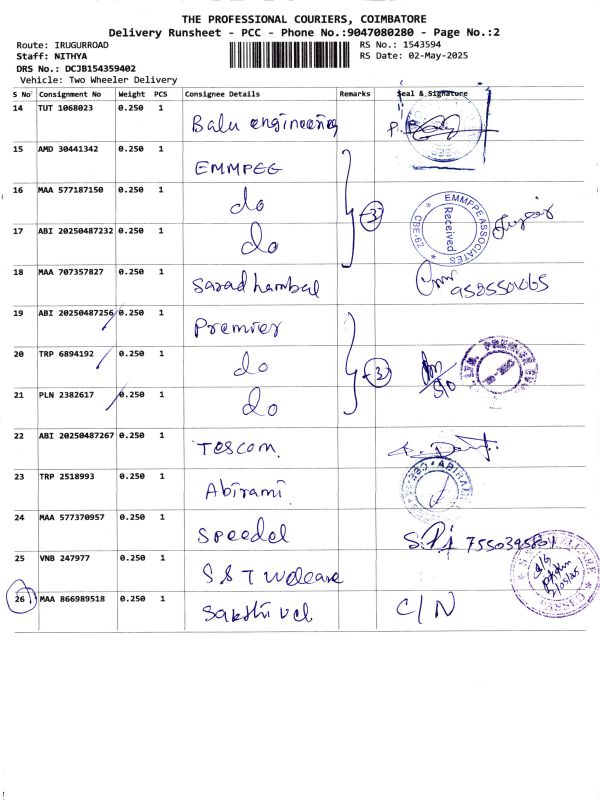 THE PROFESSIONAL COURIERS, COIMBATORE
Delivery Runsheet - PCC - Phone No.:9047080280 - Page No.:2
Route: IRUGURROAD
RS No.: 1543594
Staff: NITHYA
RS Date: 02-May-2025
DRS No.: DCJB154359402
Vehicle: Two Wheeler Delivery
S No Consignment No Weight PCS Consignee Details Remarks Seal & Signature
14 TUT 1068023 0.250 1 Balu engineering
15 AMD 30441342 0.250 1 EMMPEE
16 MAA 577187150 0.250 1 do
3
17 ABI 20250487232 0.250 1 do
EMMPPE ASSOCIATES
Received
CBE-62
18 MAA 707357827 0.250 1
19 ABI 20250487256 0.250 1 Premier
20 TRP 6894192 0.250 1 do
3
21 PLN 2382617 0.250 1 do
22 ABI 20250487267 0.250 1 Tescom.
23 TRP 2518993 0.250 1 Abirami
ABIRAMI
24 MAA 577370957 0.250 1 Speedel
25 VNB 247977 0.250 1 S S T
26 MAA 866989518 0.250 1 Sakthivel C/N